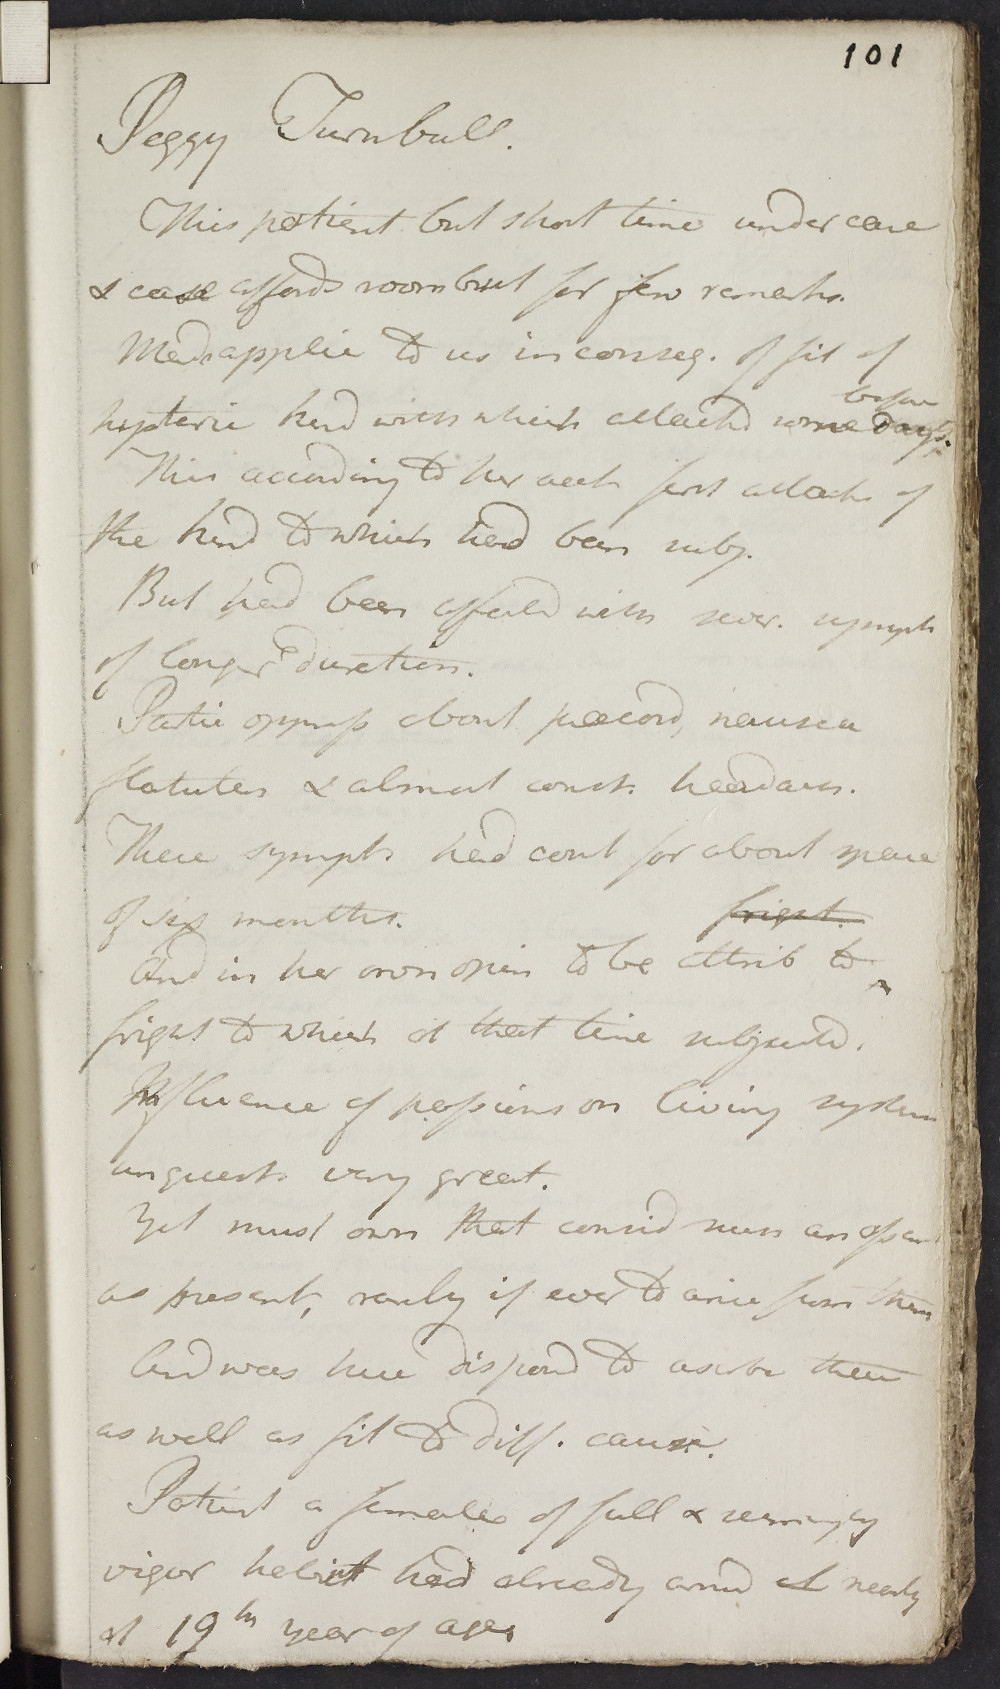 101
Peggy Turnbull.
This patient but short time under care
& case affords room but for few remarks.
Made applic to us in conseq. of fit of
hysteric kind with which attackd some days
before
This according to her acct first attack of
the kind to which had been subj.
But had been affected with sever. sympt
of longer duration.
Partic oppress about præcord, nausea
flatulen & almost const. headach.
These sympts had cont for about space
of six months.
fright.
And in her own opin to be attrib to
fright to which at that time subjected.
Influence of passions on living system
unquest. very great.
Yet must own that consid such an
as present, rarely if ever to arise from them
And was here disposd to ascribe these
as well as fit to diff. cause.
Patient a female of full & seemingly
vigor habit had already arrivd at nearly
at 19th year of age